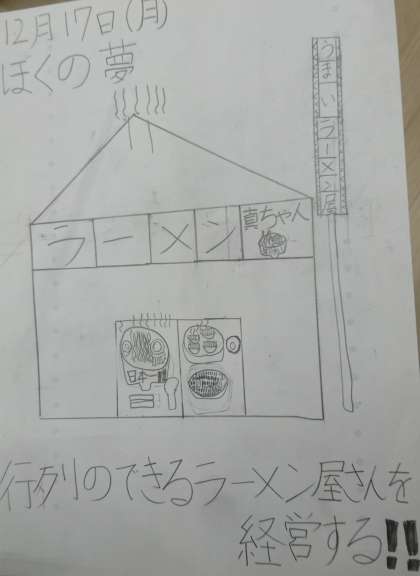 12月17日(月)
ぼくの夢
うまいラーメン屋
ラーメン 真ちゃん
日本一
行列のできるラーメン屋さんを
経営する!!